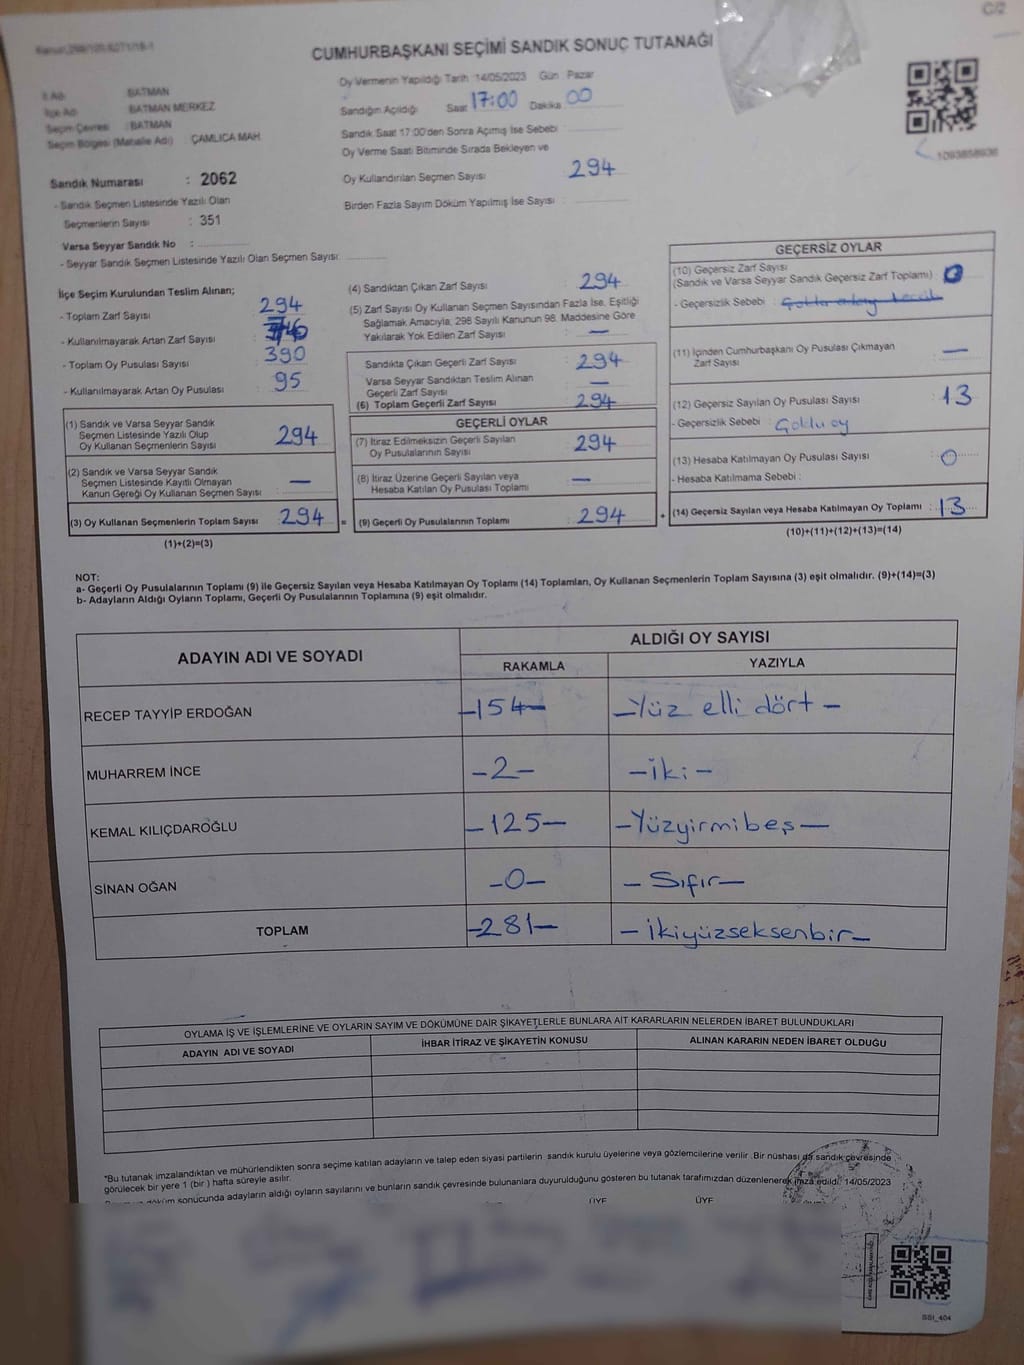 C/2
CUMHURBAŞKANI SEÇİMİ SANDIK SONUÇ TUTANAĞI
İl Adı : BATMAN
İlçe Adı : BATMAN MERKEZ
Seçim Çevresi : BATMAN
Seçim Bölgesi (Mahalle Adı) : ÇAMLICA MAH.
Oy Vermenin Yapıldığı Tarih :14/05/2023 Gün : Pazar
Sandığın Açıldığı Saat 17:00 Dakika 00
Sandık Saat 17:00'den Sonra Açımış İse Sebebi :
Oy Verme Saati Bitiminde Sırada Bekleyen ve
Oy Kullandırılan Seçmen Sayısı : 294
Birden Fazla Sayım Döküm Yapılmış İse Sayısı :
1093858936
Sandık Numarası : 2062
- Sandık Seçmen Listesinde Yazılı Olan
Seçmenlerin Sayısı : 351
Varsa Seyyar Sandık No :
- Seyyar Sandık Seçmen Listesinde Yazılı Olan Seçmen Sayısı:
İlçe Seçim Kurulundan Teslim Alınan;
- Toplam Zarf Sayısı : 294
- Kullanılmayarak Artan Zarf Sayısı :
- Toplam Oy Pusulası Sayısı : 390
- Kullanılmayarak Artan Oy Pusulası : 95
(1) Sandık ve Varsa Seyyar Sandık
Seçmen Listesinde Yazılı Olup
Oy Kullanan Seçmenlerin Sayısı : 294
(2) Sandık ve Varsa Seyyar Sandık
Seçmen Listesinde Kayıtlı Olmayan
Kanun Gereği Oy Kullanan Seçmen Sayısı : —
(3) Oy Kullanan Seçmenlerin Toplam Sayısı : 294 =
(1)+(2)=(3)
(4) Sandıktan Çıkan Zarf Sayısı : 294
(5) Zarf Sayısı Oy Kullanan Seçmen Sayısından Fazla İse, Eşitliği
Sağlamak Amacıyla, 298 Sayılı Kanunun 98. Maddesine Göre
Yakılarak Yok Edilen Zarf Sayısı : —
Sandıkta Çıkan Geçerli Zarf Sayısı : 294
Varsa Seyyar Sandıktan Teslim Alınan
Geçerli Zarf Sayısı : —
(6) Toplam Geçerli Zarf Sayısı : 294
GEÇERLİ OYLAR
(7) İtiraz Edilmeksizin Geçerli Sayılan
Oy Pusulalarının Sayısı : 294
(8) İtiraz Üzerine Geçerli Sayılan veya
Hesaba Katılan Oy Pusulası Toplamı : —
(9) Geçerli Oy Pusulalarının Toplamı : 294 +
GEÇERSİZ OYLAR
(10) Geçersiz Zarf Sayısı
(Sandık ve Varsa Seyyar Sandık Geçersiz Zarf Toplamı) : 0
- Geçersizlik Sebebi :
(11) İçinden Cumhurbaşkanı Oy Pusulası Çıkmayan
Zarf Sayısı : —
(12) Geçersiz Sayılan Oy Pusulası Sayısı : 13
- Geçersizlik Sebebi :
(13) Hesaba Katılmayan Oy Pusulası Sayısı : 0
- Hesaba Katılmama Sebebi :
(14) Geçersiz Sayılan veya Hesaba Katılmayan Oy Toplamı : 13
(10)+(11)+(12)+(13)=(14)
NOT:
a- Geçerli Oy Pusulalarının Toplamı (9) ile Geçersiz Sayılan veya Hesaba Katılmayan Oy Toplamı (14) Toplamları, Oy Kullanan Seçmenlerin Toplam Sayısına (3) eşit olmalıdır. (9)+(14)=(3)
b- Adayların Aldığı Oyların Toplamı, Geçerli Oy Pusulalarının Toplamına (9) eşit olmalıdır.
ADAYIN ADI VE SOYADI
ALDIĞI OY SAYISI
RAKAMLA YAZIYLA
RECEP TAYYİP ERDOĞAN -154- -Yüz elli dört-
MUHARREM İNCE -2- -iki-
KEMAL KILIÇDAROĞLU -125- -Yüzyirmibeş-
SİNAN OĞAN -0- -Sıfır-
TOPLAM -281- -ikiyüzseksenbir-
OYLAMA İŞ VE İŞLEMLERİNE VE OYLARIN SAYIM VE DÖKÜMÜNE DAİR ŞİKAYETLERLE BUNLARA AİT KARARLARIN NELERDEN İBARET BULUNDUKLARI
ADAYIN ADI VE SOYADI İHBAR İTİRAZ VE ŞİKAYETİN KONUSU ALINAN KARARIN NEDEN İBARET OLDUĞU
*Bu tutanak imzalandıktan ve mühürlendikten sonra seçime katılan adayların ve talep eden siyasi partilerin sandık kurulu üyelerine veya gözlemcilerine verilir. Bir nüshası da sandık çevresinde
görülecek bir yere 1 (bir ) hafta süreyle asılır.
döküm sonucunda adayların aldığı oyların sayılarını ve bunların sandık çevresinde bulunanlara duyurulduğunu gösteren bu tutanak tarafımızdan düzenlenerek imza edildi. 14/05/2023
ÜYE ÜYE
SSI_404